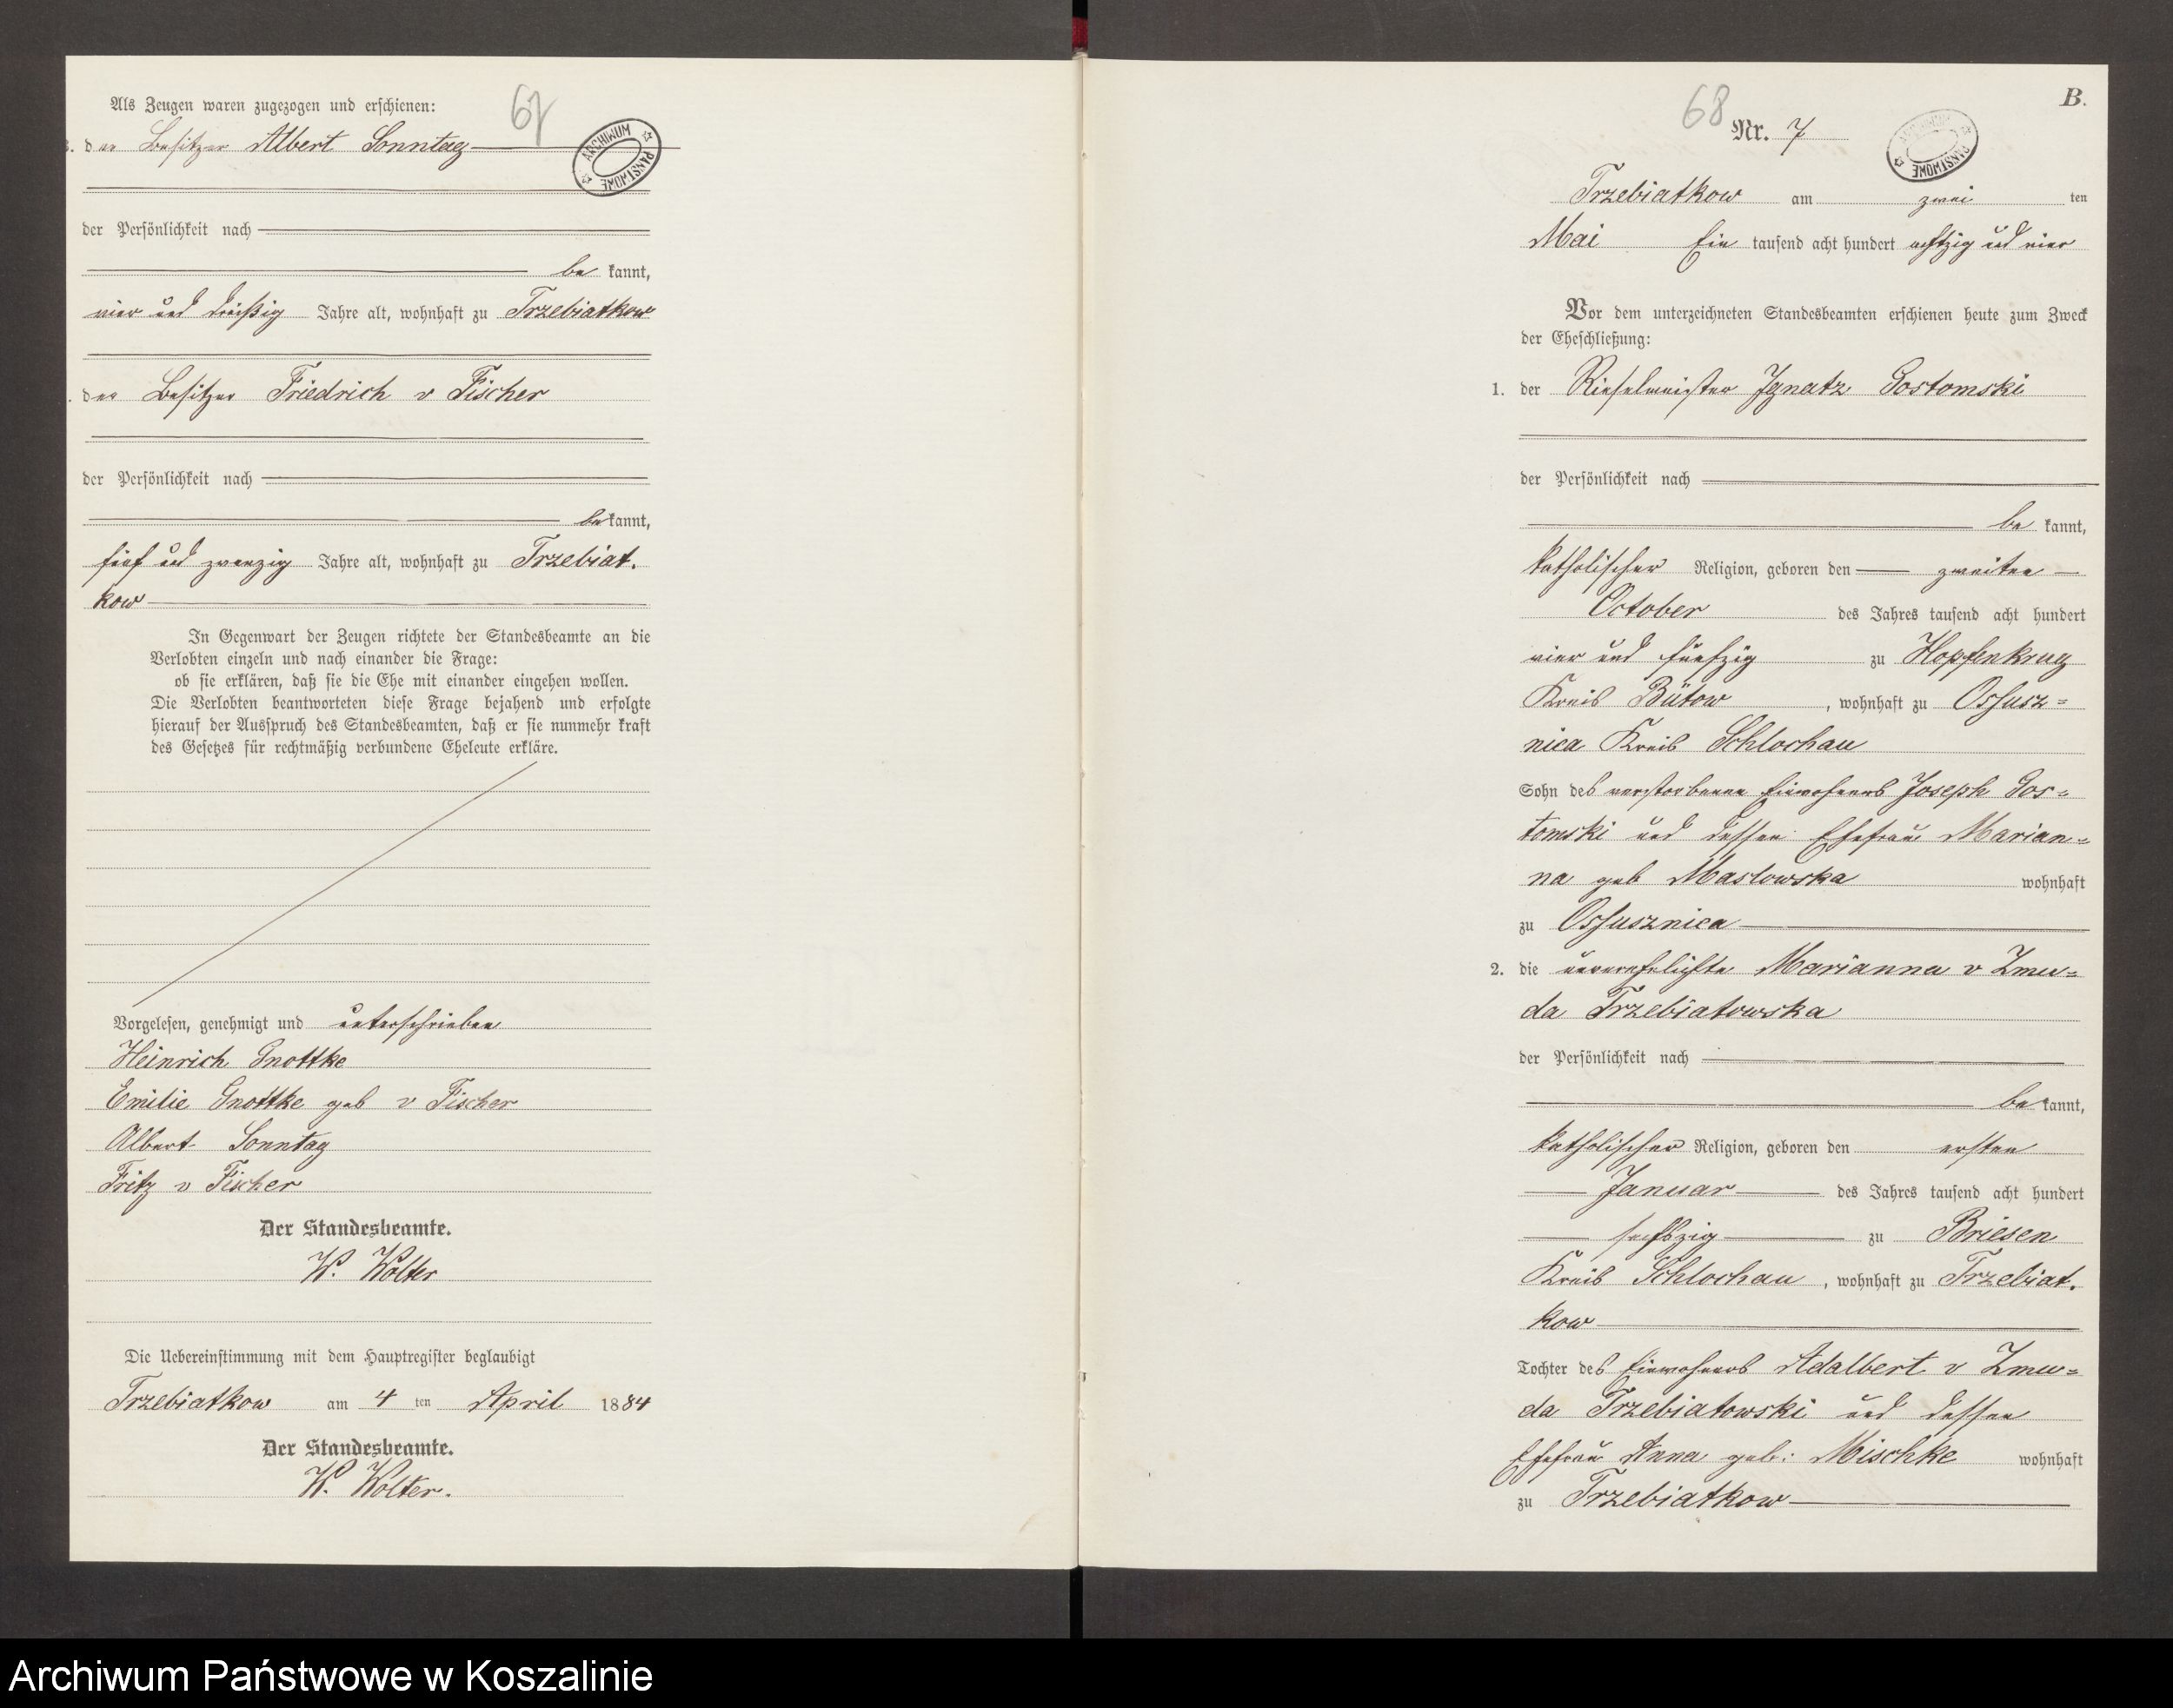 Als Zeugen waren zugezogen und erschienen:
67
3. der Besitzer Albert Sonntag
ARCHIWUM PAŃSTWOWE
der Persönlichkeit nach
be kannt,
vier und dreißig Jahre alt, wohnhaft zu Trzebiatkow
. der Besitzer Friedrich v Fischer
der Persönlichkeit nach
be kannt,
fünf und zwanzig Jahre alt, wohnhaft zu Trzebiat.
kow
In Gegenwart der Zeugen richtete der Standesbeamte an die
Verlobten einzeln und nach einander die Frage:
ob sie erklären, daß sie die Ehe mit einander eingehen wollen.
Die Verlobten beantworteten diese Frage bejahend und erfolgte
hierauf der Ausspruch des Standesbeamten, daß er sie nunmehr kraft
des Gesetzes für rechtmäßig verbundene Eheleute erkläre.
Vorgelesen, genehmigt und unterschrieben
Heinrich Gnottke
Emilie Gnottke geb v Fischer
Albert Sonntag
Fritz v Fischer
Der Standesbeamte.
W. Wolter
Die Uebereinstimmung mit dem Hauptregister beglaubigt
Trzebiatkow am 4 ten April 1884
Der Standesbeamte.
W. Wolter.
B.
68
Nr. 7
ARCHIWUM PAŃSTWOWE
Trzebiatkow am zwei ten
Mai Ein tausend acht hundert achtzig und vier
Vor dem unterzeichneten Standesbeamten erschienen heute zum Zweck
der Eheschließung:
1. der Rieselmeister Ignatz Gostomski
der Persönlichkeit nach
be kannt,
katholischer Religion, geboren den zweiten
October des Jahres tausend acht hundert
vier und fünfzig zu Hopfenkrug
Kreis Bütow, wohnhaft zu Ossusz=
nica Kreis Schlochau
Sohn des verstorbenen Einwohners Joseph Gos=
tomski und dessen Ehefrau Marian=
na geb Maslowska wohnhaft
zu Ossusznica
2. die unverehelichte Marianna v Zmu=
da Trzebiatowska
der Persönlichkeit nach
be kannt,
katholischer Religion, geboren den ersten
Januar des Jahres tausend acht hundert
sechszig zu Briesen
Kreis Schlochau, wohnhaft zu Trzebiat.
kow
Tochter des Einwohners Adalbert v Zmu=
da Trzebiatowski und dessen
Ehefrau Anna geb: Mischke wohnhaft
zu Trzebiatkow
Archiwum Państwowe w Koszalinie